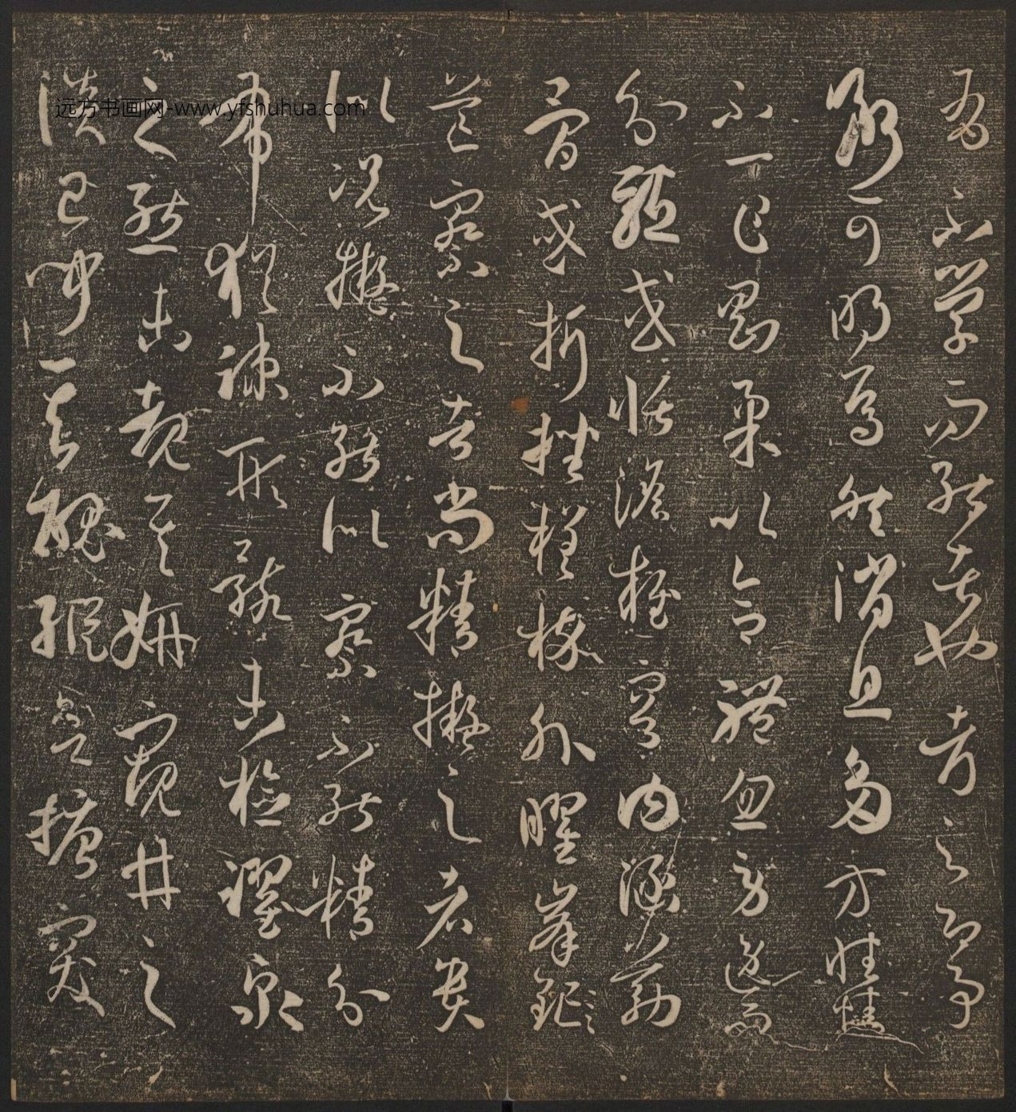 有不學而能者也考之即事
斷可明焉然消息多方性情
不一乍剛柔以合體忽勞逸而
分驅或恬憺雍容內涵筋
骨或折挫槎枿外曜峯鋩
芒察之者尚精擬之者貴
似況擬不能似察不能精分
布猶疎形骸未檢躍泉
之態未覩其妍窺井之
談已聞其醜縱欲搪突
远方书画网-www.yfshuhua.com